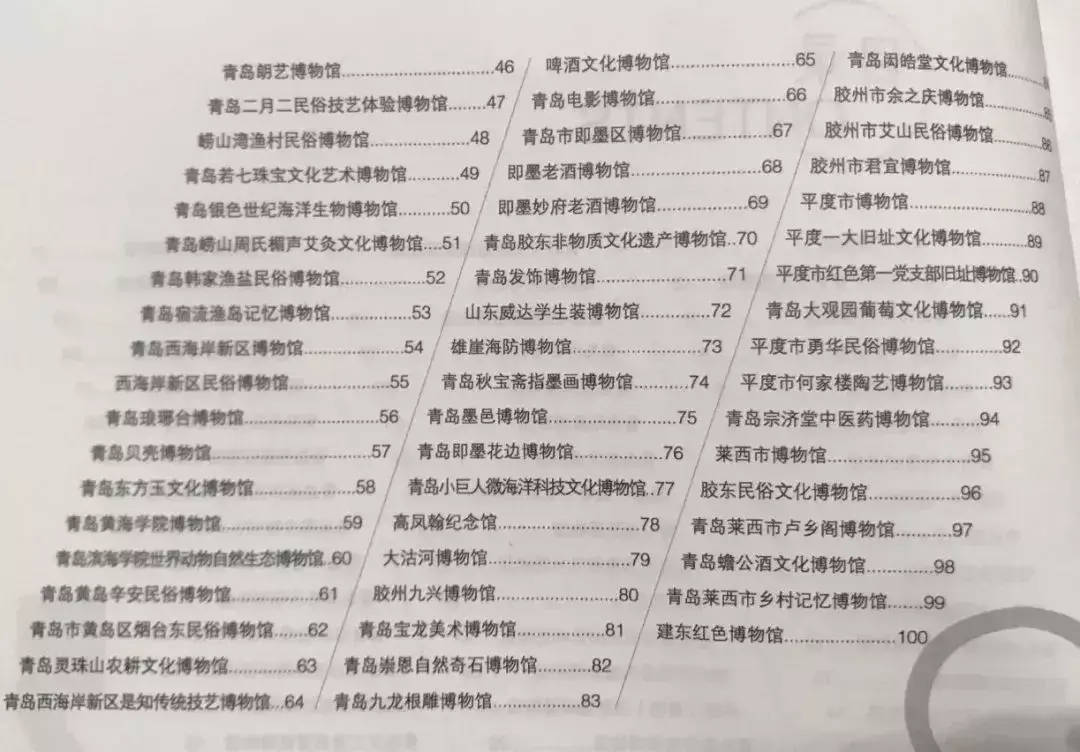 青岛朗艺博物馆......46
青岛二月二民俗技艺体验博物馆......47
崂山湾渔村民俗博物馆......48
青岛若七珠宝文化艺术博物馆......49
青岛银色世纪海洋生物博物馆......50
青岛崂山周氏楣声艾灸文化博物馆......51
青岛韩家渔盐民俗博物馆......52
青岛宿流渔岛记忆博物馆......53
青岛西海岸新区博物馆......54
西海岸新区民俗博物馆......55
青岛琅琊台博物馆......56
青岛贝壳博物馆......57
青岛东方玉文化博物馆......58
青岛黄海学院博物馆......59
青岛滨海学院世界动物自然生态博物馆..60
青岛黄岛辛安民俗博物馆......61
青岛市黄岛区烟台东民俗博物馆......62
青岛灵珠山农耕文化博物馆......63
青岛西海岸新区是知传统技艺博物馆...64
啤酒文化博物馆......65
青岛电影博物馆......66
青岛市即墨区博物馆......67
即墨老酒博物馆......68
即墨妙府老酒博物馆......69
青岛胶东非物质文化遗产博物馆..70
青岛发饰博物馆......71
山东威达学生装博物馆......72
雄崖海防博物馆......73
青岛秋宝斋指墨画博物馆......74
青岛墨邑博物馆......75
青岛即墨花边博物馆......76
青岛小巨人微海洋科技文化博物馆..77
高凤翰纪念馆......78
大沽河博物馆......79
胶州九兴博物馆......80
青岛宝龙美术博物馆......81
青岛崇恩自然奇石博物馆......82
青岛九龙根雕博物馆......83
青岛闳皓堂文化博物馆......
胶州市余之庆博物馆......85
胶州市艾山民俗博物馆......86
胶州市君宜博物馆......87
平度市博物馆......88
平度一大旧址文化博物馆......89
平度市红色第一党支部旧址博物馆..90
青岛大观园葡萄文化博物馆......91
平度市勇华民俗博物馆......92
平度市何家楼陶艺博物馆......93
青岛宗济堂中医药博物馆......94
莱西市博物馆......95
胶东民俗文化博物馆......96
青岛莱西市卢乡阁博物馆......97
青岛蟾公酒文化博物馆......98
青岛莱西市乡村记忆博物馆......99
建东红色博物馆......100